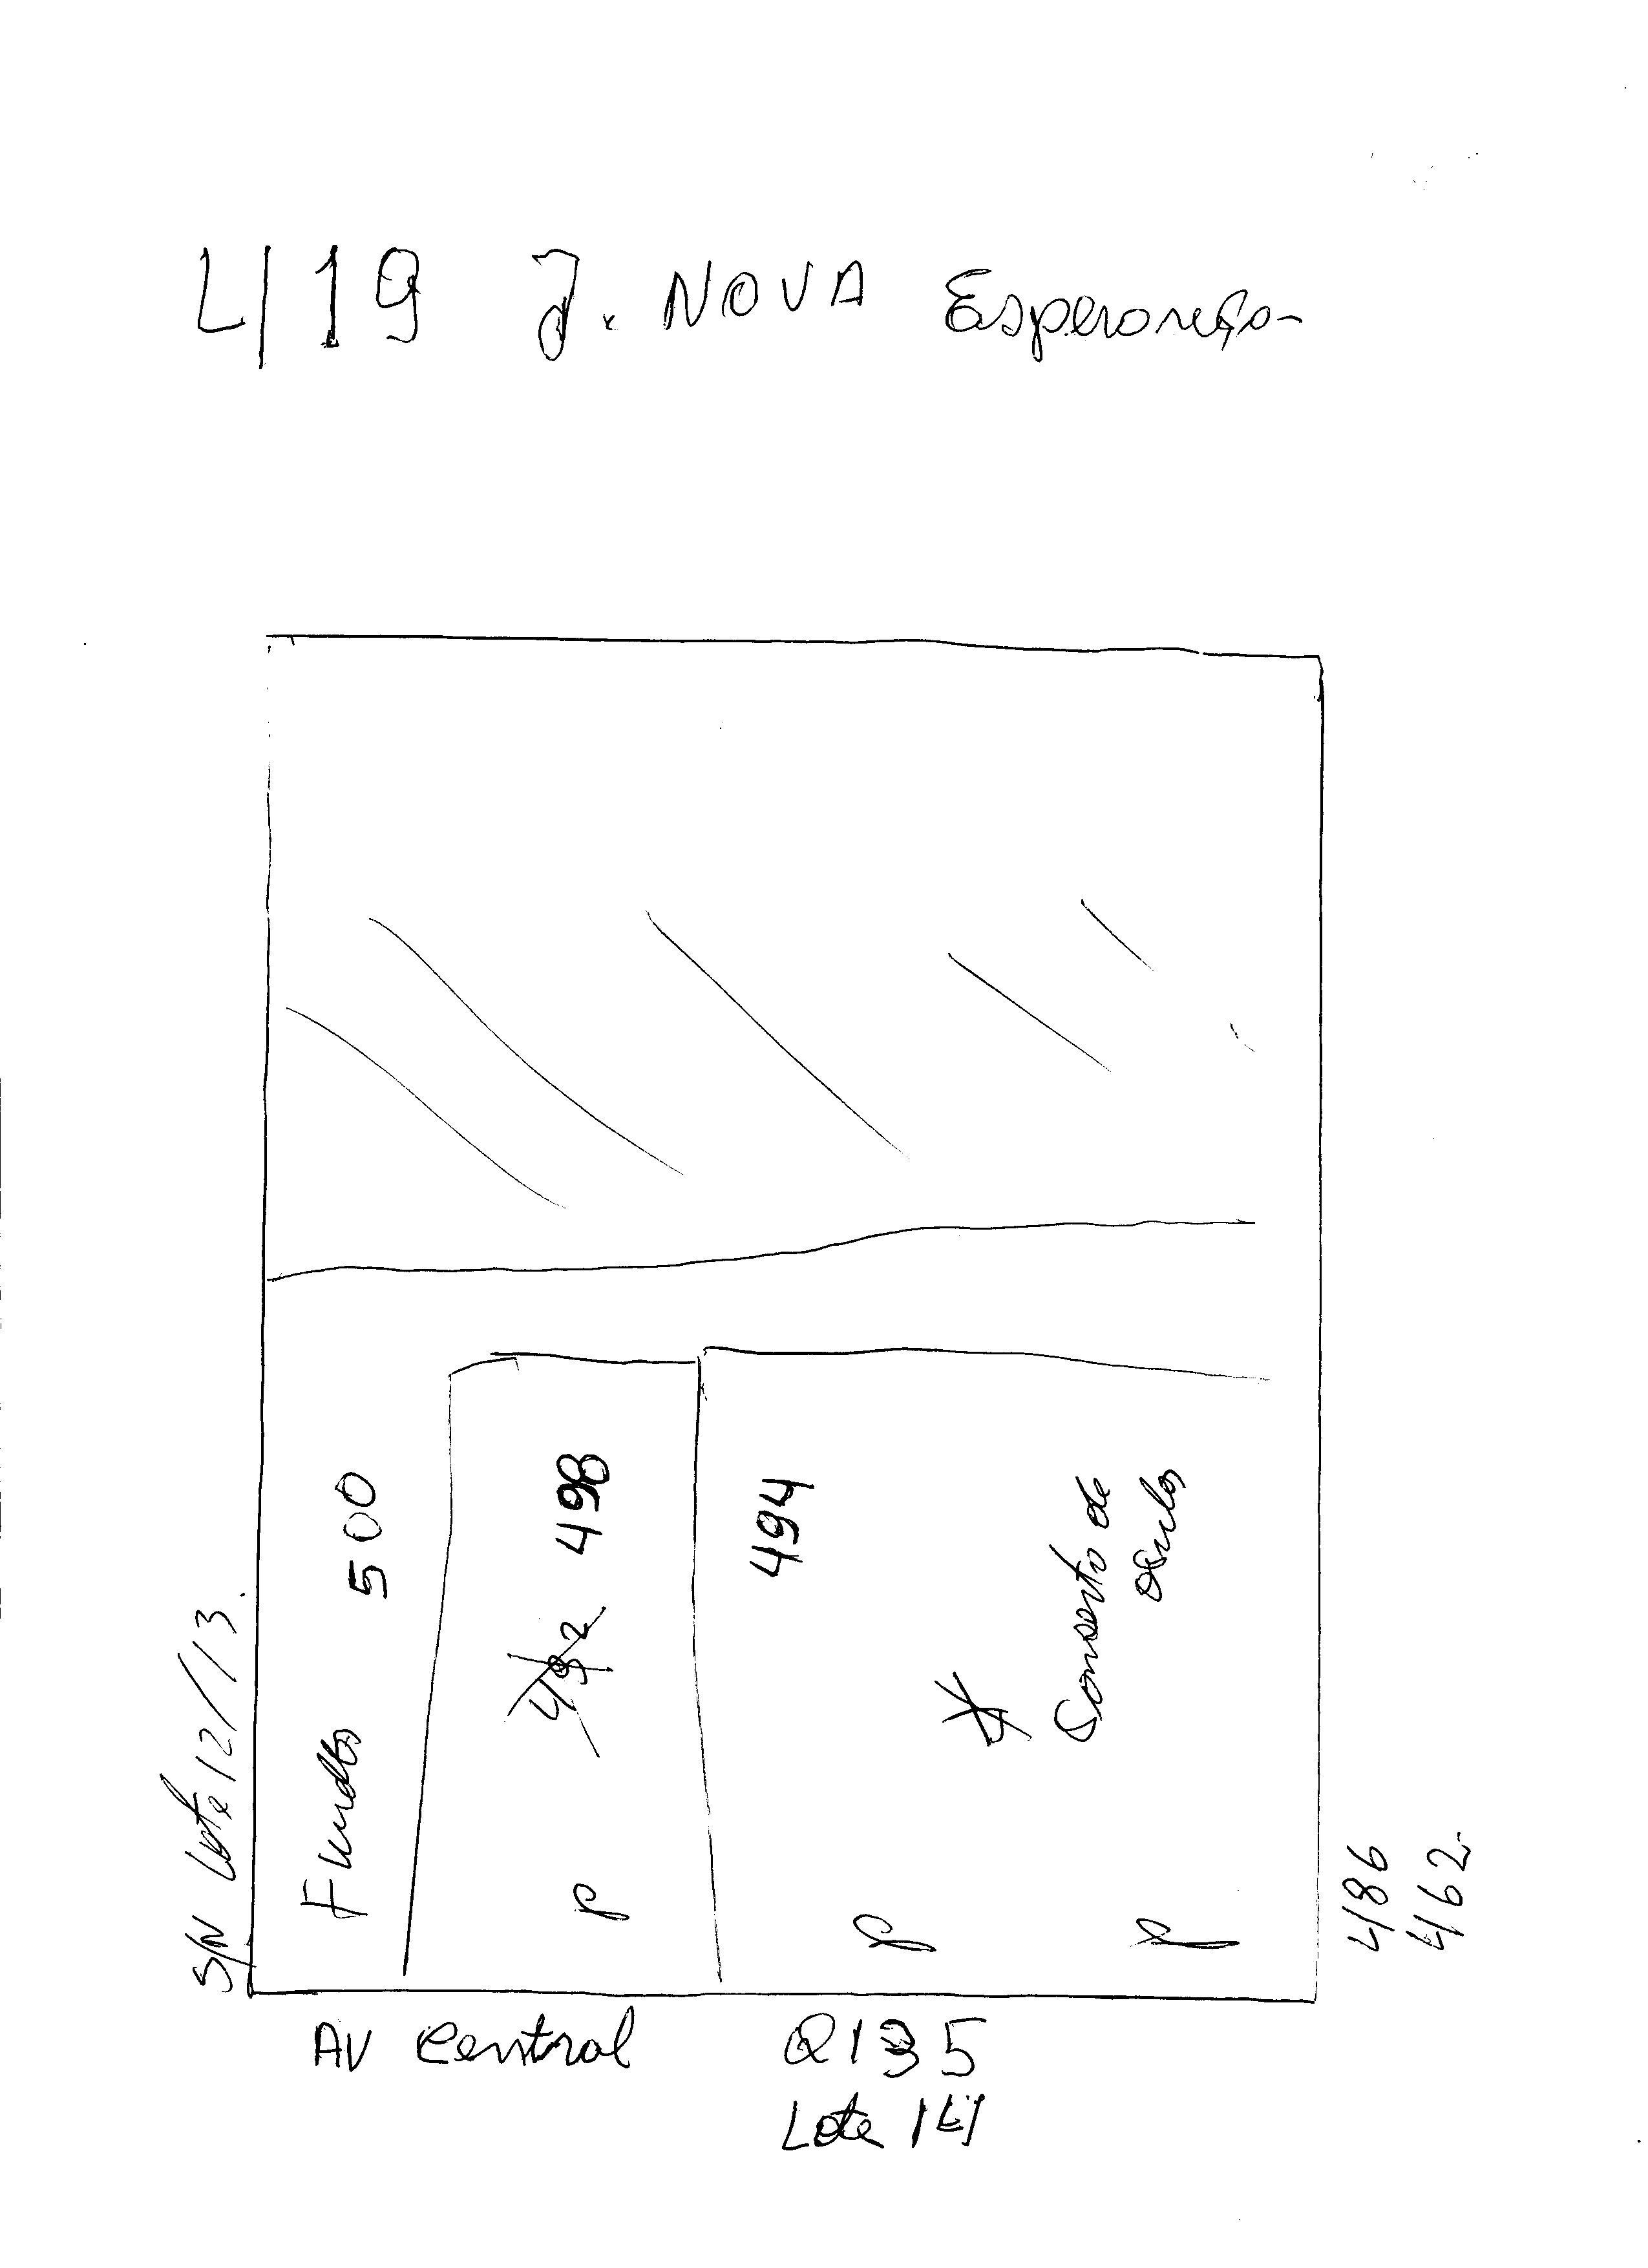 419 J. NOVA Esperança
S/N Lote 12/13
Fundos 500
492 498
P
494
Conserto de
oculos
P
P
486
462
AV Central Q135
Lote 14